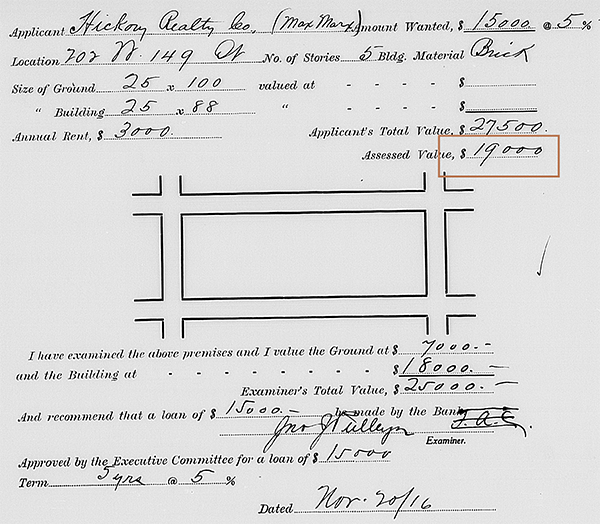 Applicant Hickory Realty Co. (Max Marx) Amount Wanted, $ 15000. @ 5 %
Location 202 W. 149 St No. of Stories 5 Bldg. Material Brick
Size of Ground 25 x 100 valued at - - - - $
" Building 25 x 88 " - - - - $
Annual Rent, $ 3000. Applicant's Total Value, $ 27500.
Assessed Value, $ 19000
I have examined the above premises and I value the Ground at $ 7000.-
and the Building at - - - - - - - - $ 18000.-
Examiner's Total Value, $ 25000.-
And recommend that a loan of $ 15000.- be made by the Bank
Jno J Pulleyn
Examiner.
Approved by the Executive Committee for a loan of $ 15000
Term 5 yrs @ 5 %
Dated Nov. 20/16